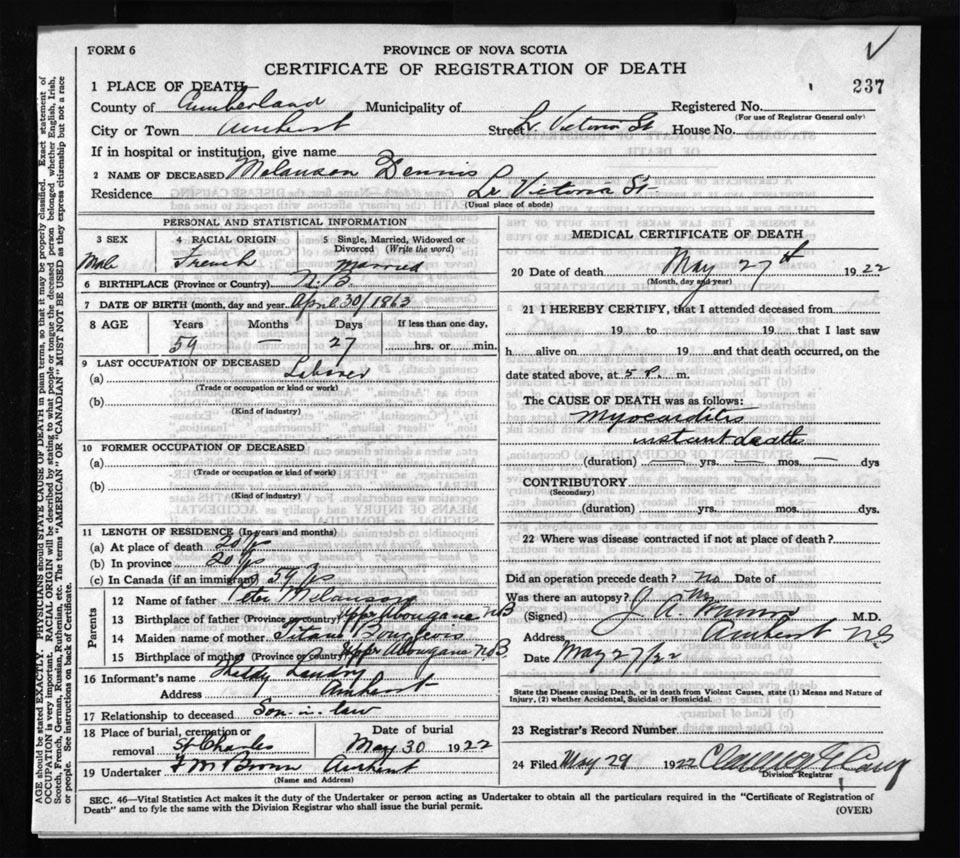 FORM 6
PROVINCE OF NOVA SCOTIA
CERTIFICATE OF REGISTRATION OF DEATH
237
1 PLACE OF DEATH—
County of Cumberland Municipality of Registered No.
(For use of Registrar General only)
City or Town Amherst Street Lr. Victoria St House No.
If in hospital or institution, give name
2 NAME OF DECEASED Melanson Dennis
Residence Lr Victoria St
(Usual place of abode)
PERSONAL AND STATISTICAL INFORMATION
3 SEX 4 RACIAL ORIGIN 5 Single, Married, Widowed or Divorced (Write the word)
Male French Married
6 BIRTHPLACE (Province or Country) N.B.
7 DATE OF BIRTH (month, day and year) April 30/1863
8 AGE Years Months Days If less than one day,
59 — 27 hrs. or min.
9 LAST OCCUPATION OF DECEASED
(a) Laborer
(Trade or occupation or kind of work)
(b)
(Kind of industry)
10 FORMER OCCUPATION OF DECEASED
(a)
(Trade or occupation or kind of work)
(b)
(Kind of industry)
11 LENGTH OF RESIDENCE (In years and months)
(a) At place of death 20 yrs
(b) In province 20 yrs
(c) In Canada (if an immigrant) 59 yrs
Parents
12 Name of father Peter Melanson
13 Birthplace of father (Province or country) Upper Abougane NB
14 Maiden name of mother Bourgeois
15 Birthplace of mother (Province or country) Upper Abougane N.B
16 Informant's name Landry
Address Amherst
17 Relationship to deceased Son-in-law
18 Place of burial, cremation or removal St Charles
Date of burial May 30 1922
19 Undertaker F M Brown Amherst
(Name and Address)
MEDICAL CERTIFICATE OF DEATH
20 Date of death May 27th 1922
(Month, day and year)
21 I HEREBY CERTIFY, that I attended deceased from
19 to 19 that I last saw
h alive on 19 and that death occurred, on the
date stated above, at 5 P. m.
The CAUSE OF DEATH was as follows:
Myocarditis
instant death
(duration) — yrs. — mos. — dys
CONTRIBUTORY
(Secondary)
(duration) yrs. mos. dys.
22 Where was disease contracted if not at place of death?
Did an operation precede death? No Date of
Was there an autopsy? No
(Signed) J. A. Munro M.D.
Address, Amherst N.S.
Date May 27/22
State the Disease causing Death, or in death from Violent Causes, state (1) Means and Nature of
Injury, (2) whether Accidental, Suicidal or Homicidal.
23 Registrar's Record Number
24 Filed May 29 1922
Division Registrar
SEC. 46—Vital Statistics Act makes it the duty of the Undertaker or person acting as Undertaker to obtain all the particulars required in the "Certificate of Registration of
Death" and to fyle the same with the Division Registrar who shall issue the burial permit.
(OVER)
AGE should be stated EXACTLY. PHYSICIANS should STATE CAUSE OF DEATH in plain terms, so that it may be properly classified. Exact statement of
OCCUPATION is very important. RACIAL ORIGIN will be described by stating to what people or tongue the deceased person belonged whether English, Irish,
Scotch, French, German, Russian, Ruthenian, etc. The terms "AMERICAN" OR "CANADIAN" MUST NOT BE USED as they express citizenship but not a race
or people. See instructions on back of Certificate.